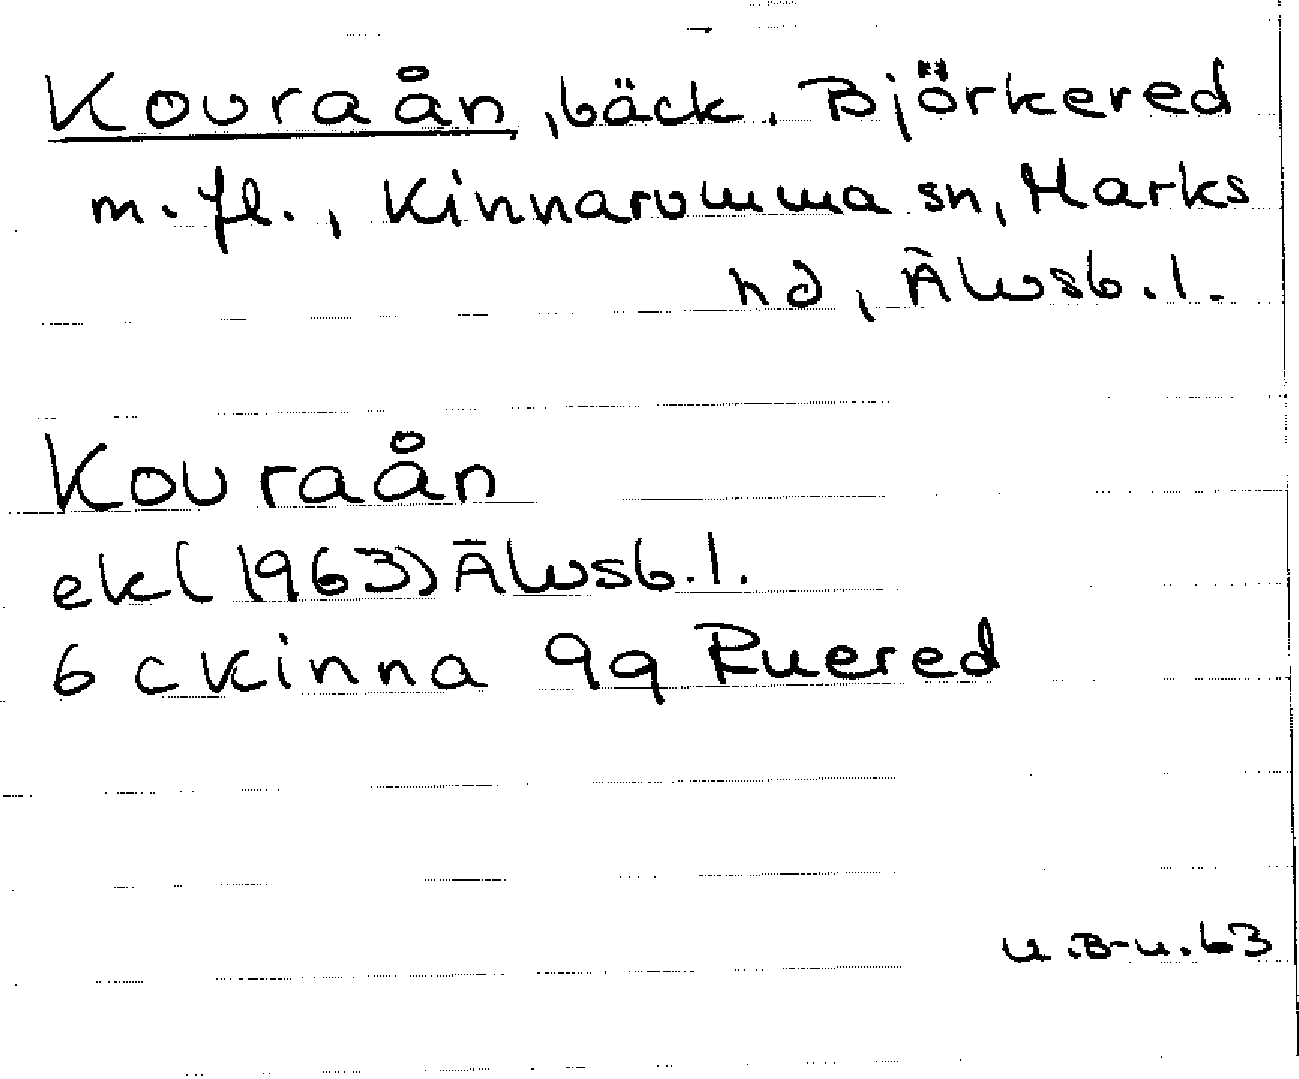 Kovraån, bäck, Björkered
m.fl., Kinnarumma sn, Marks
hd, Älvsb.l.
Kovraån
ek (1963) Älvsb.l.
6 c Kinna 9g Ruered